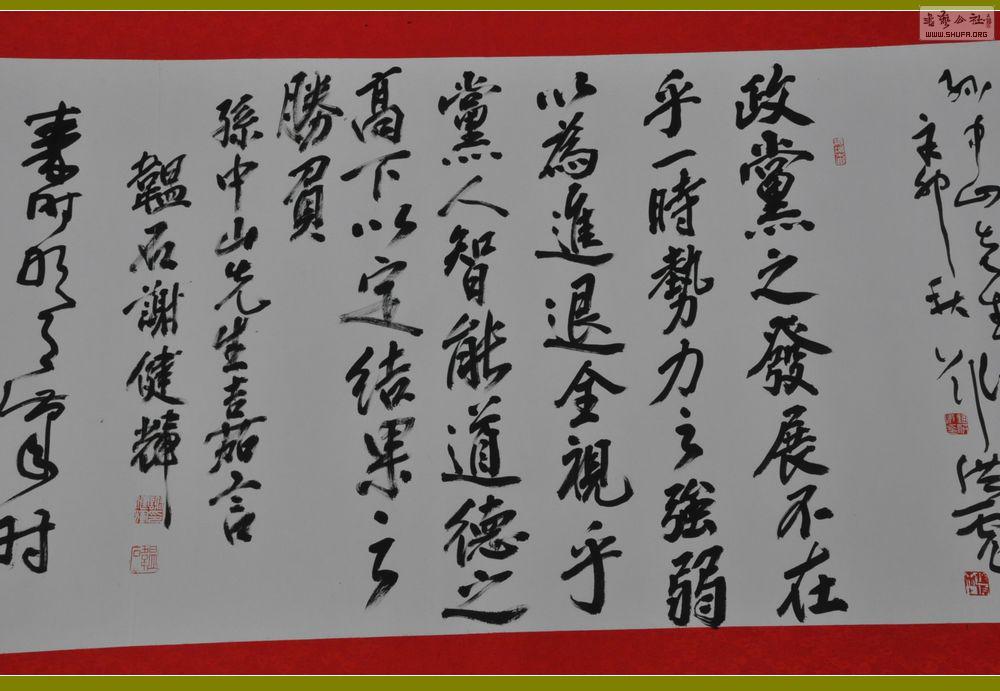 书艺公社
WWW.SHUFA.ORG
孙中山先生
辛卯秋
政黨之發展不在
乎一時勢力之強弱
以為進退全視乎
黨人智能道德之
高下以定結果之
勝負
孫中山先生嘉言
韞石謝健輝